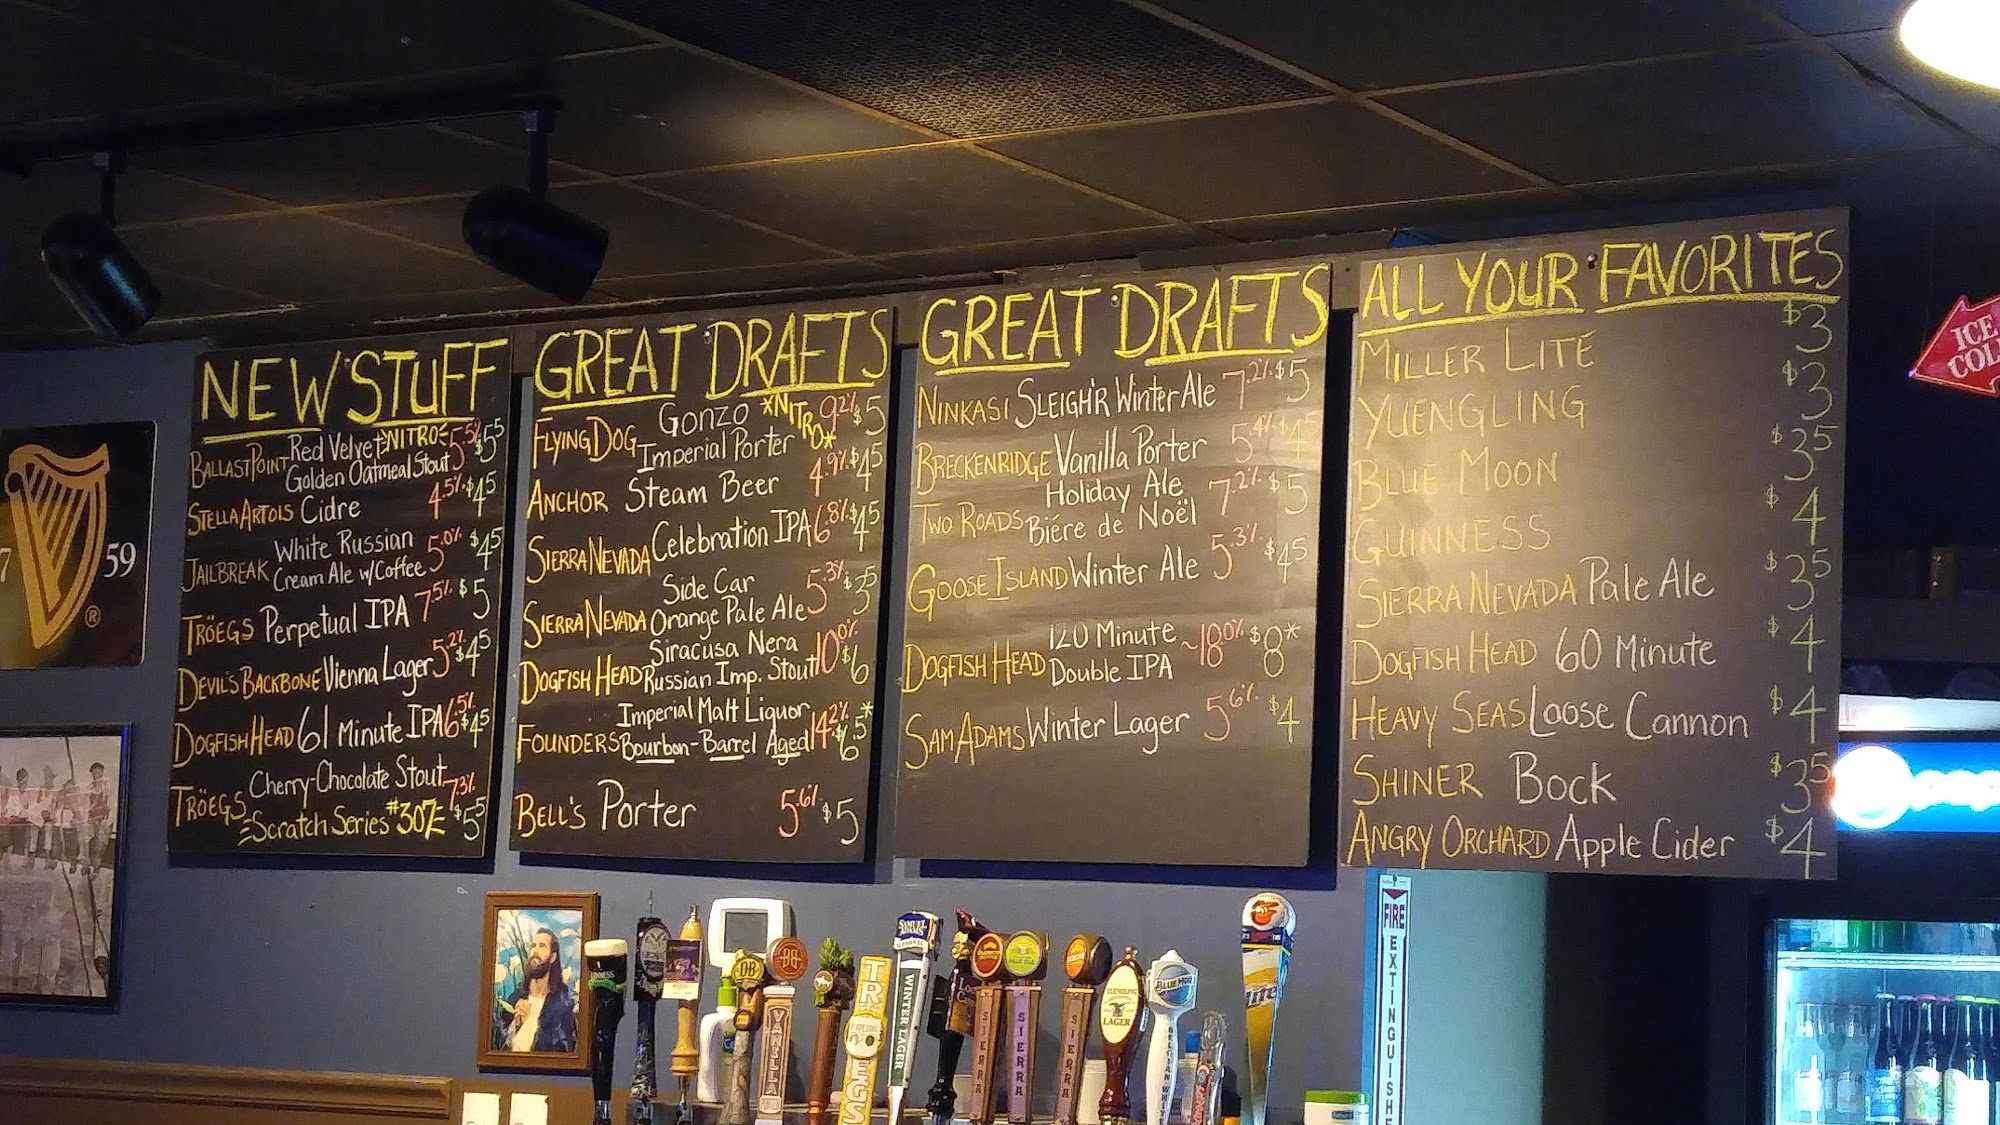 NEW STUFF
BALLAST POINT Red Velvet *NITRO* 5.5% $5.5
Golden Oatmeal Stout
STELLA ARTOIS Cidre 4.5% $4.5
JAILBREAK White Russian 5.0% $4.5
Cream Ale w/Coffee
TRÖEGS Perpetual IPA 7.5% $5
DEVIL'S BACKBONE Vienna Lager 5.2% $4.5
DOGFISH HEAD 61 Minute IPA 6.5% $4.5
TRÖEGS Cherry-Chocolate Stout 7.3%
Scratch Series #307 $5.5
GREAT DRAFTS
FLYING DOG Gonzo *NITRO* 9.2% $5
Imperial Porter
ANCHOR Steam Beer 4.9% $4.5
SIERRA NEVADA Celebration IPA 6.8% $4.5
SIERRA NEVADA Side Car 5.3% $3.5
Orange Pale Ale
DOGFISH HEAD Siracusa Nera 10.0% $6
Russian Imp. Stout
FOUNDERS Imperial Malt Liquor 14.2% $6.5*
Bourbon-Barrel Aged
BELL'S Porter 5.6% $5
GREAT DRAFTS
NINKASI SLEIGH'R Winter Ale 7.2% $5
BRECKENRIDGE Vanilla Porter 5.4% $4.5
TWO ROADS Holiday Ale 7.2% $5
Biére de Noël
GOOSE ISLAND Winter Ale 5.3% $4.5
DOGFISH HEAD 120 Minute ~18.0% $8*
Double IPA
SAM ADAMS Winter Lager 5.6% $4
ALL YOUR FAVORITES
MILLER LITE $3
YUENGLING $3
BLUE MOON $3.5
GUINNESS $4
SIERRA NEVADA Pale Ale $3.5
DOGFISH HEAD 60 Minute $4
HEAVY SEAS Loose Cannon $4
SHINER Bock $3.5
ANGRY ORCHARD Apple Cider $4
ICE
COL
59
®
FIRE
EXTINGUISHE
GUINNESS
DB
VANILLA
TRÖEGS
SAMUEL
ADAMS
WINTER LAGER
SIERRA
SIERRA
SIERRA
YUENGLING
LAGER
BLUE MOON
BELGIAN WHITE
Lite